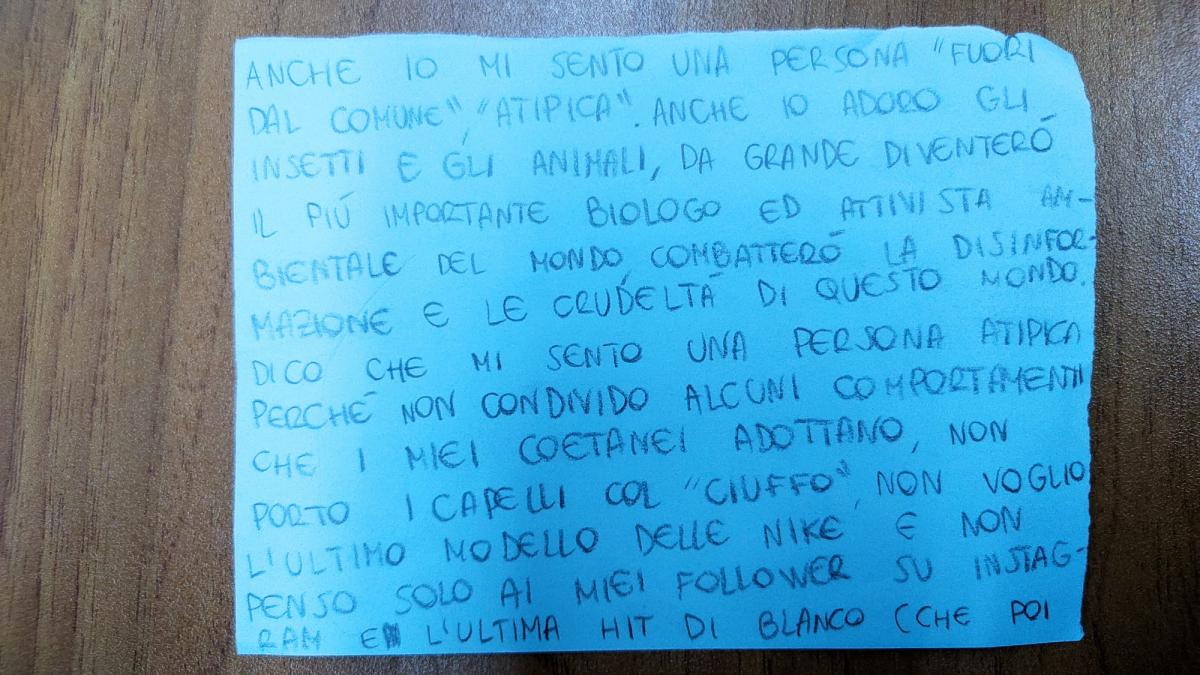 ANCHE IO MI SENTO UNA PERSONA "FUORI
DAL COMUNE", "ATIPICA". ANCHE IO ADORO GLI
INSETTI E GLI ANIMALI, DA GRANDE DIVENTERÓ
IL PIÚ IMPORTANTE BIOLOGO ED ATTIVISTA AM-
BIENTALE DEL MONDO, COMBATTERÓ LA DISINFOR-
MAZIONE E LE CRUDELTÁ DI QUESTO MONDO.
DICO CHE MI SENTO UNA PERSONA ATIPICA
PERCHÉ NON CONDIVIDO ALCUNI COMPORTAMENTI
CHE I MIEI COETANEI ADOTTANO, NON
PORTO I CAPELLI COL "CIUFFO", NON VOGLIO
L'ULTIMO MODELLO DELLE NIKE E NON
PENSO SOLO AI MIEI FOLLOWER SU INSTAG-
RAM E L'ULTIMA HIT DI BLANCO (CHE POI